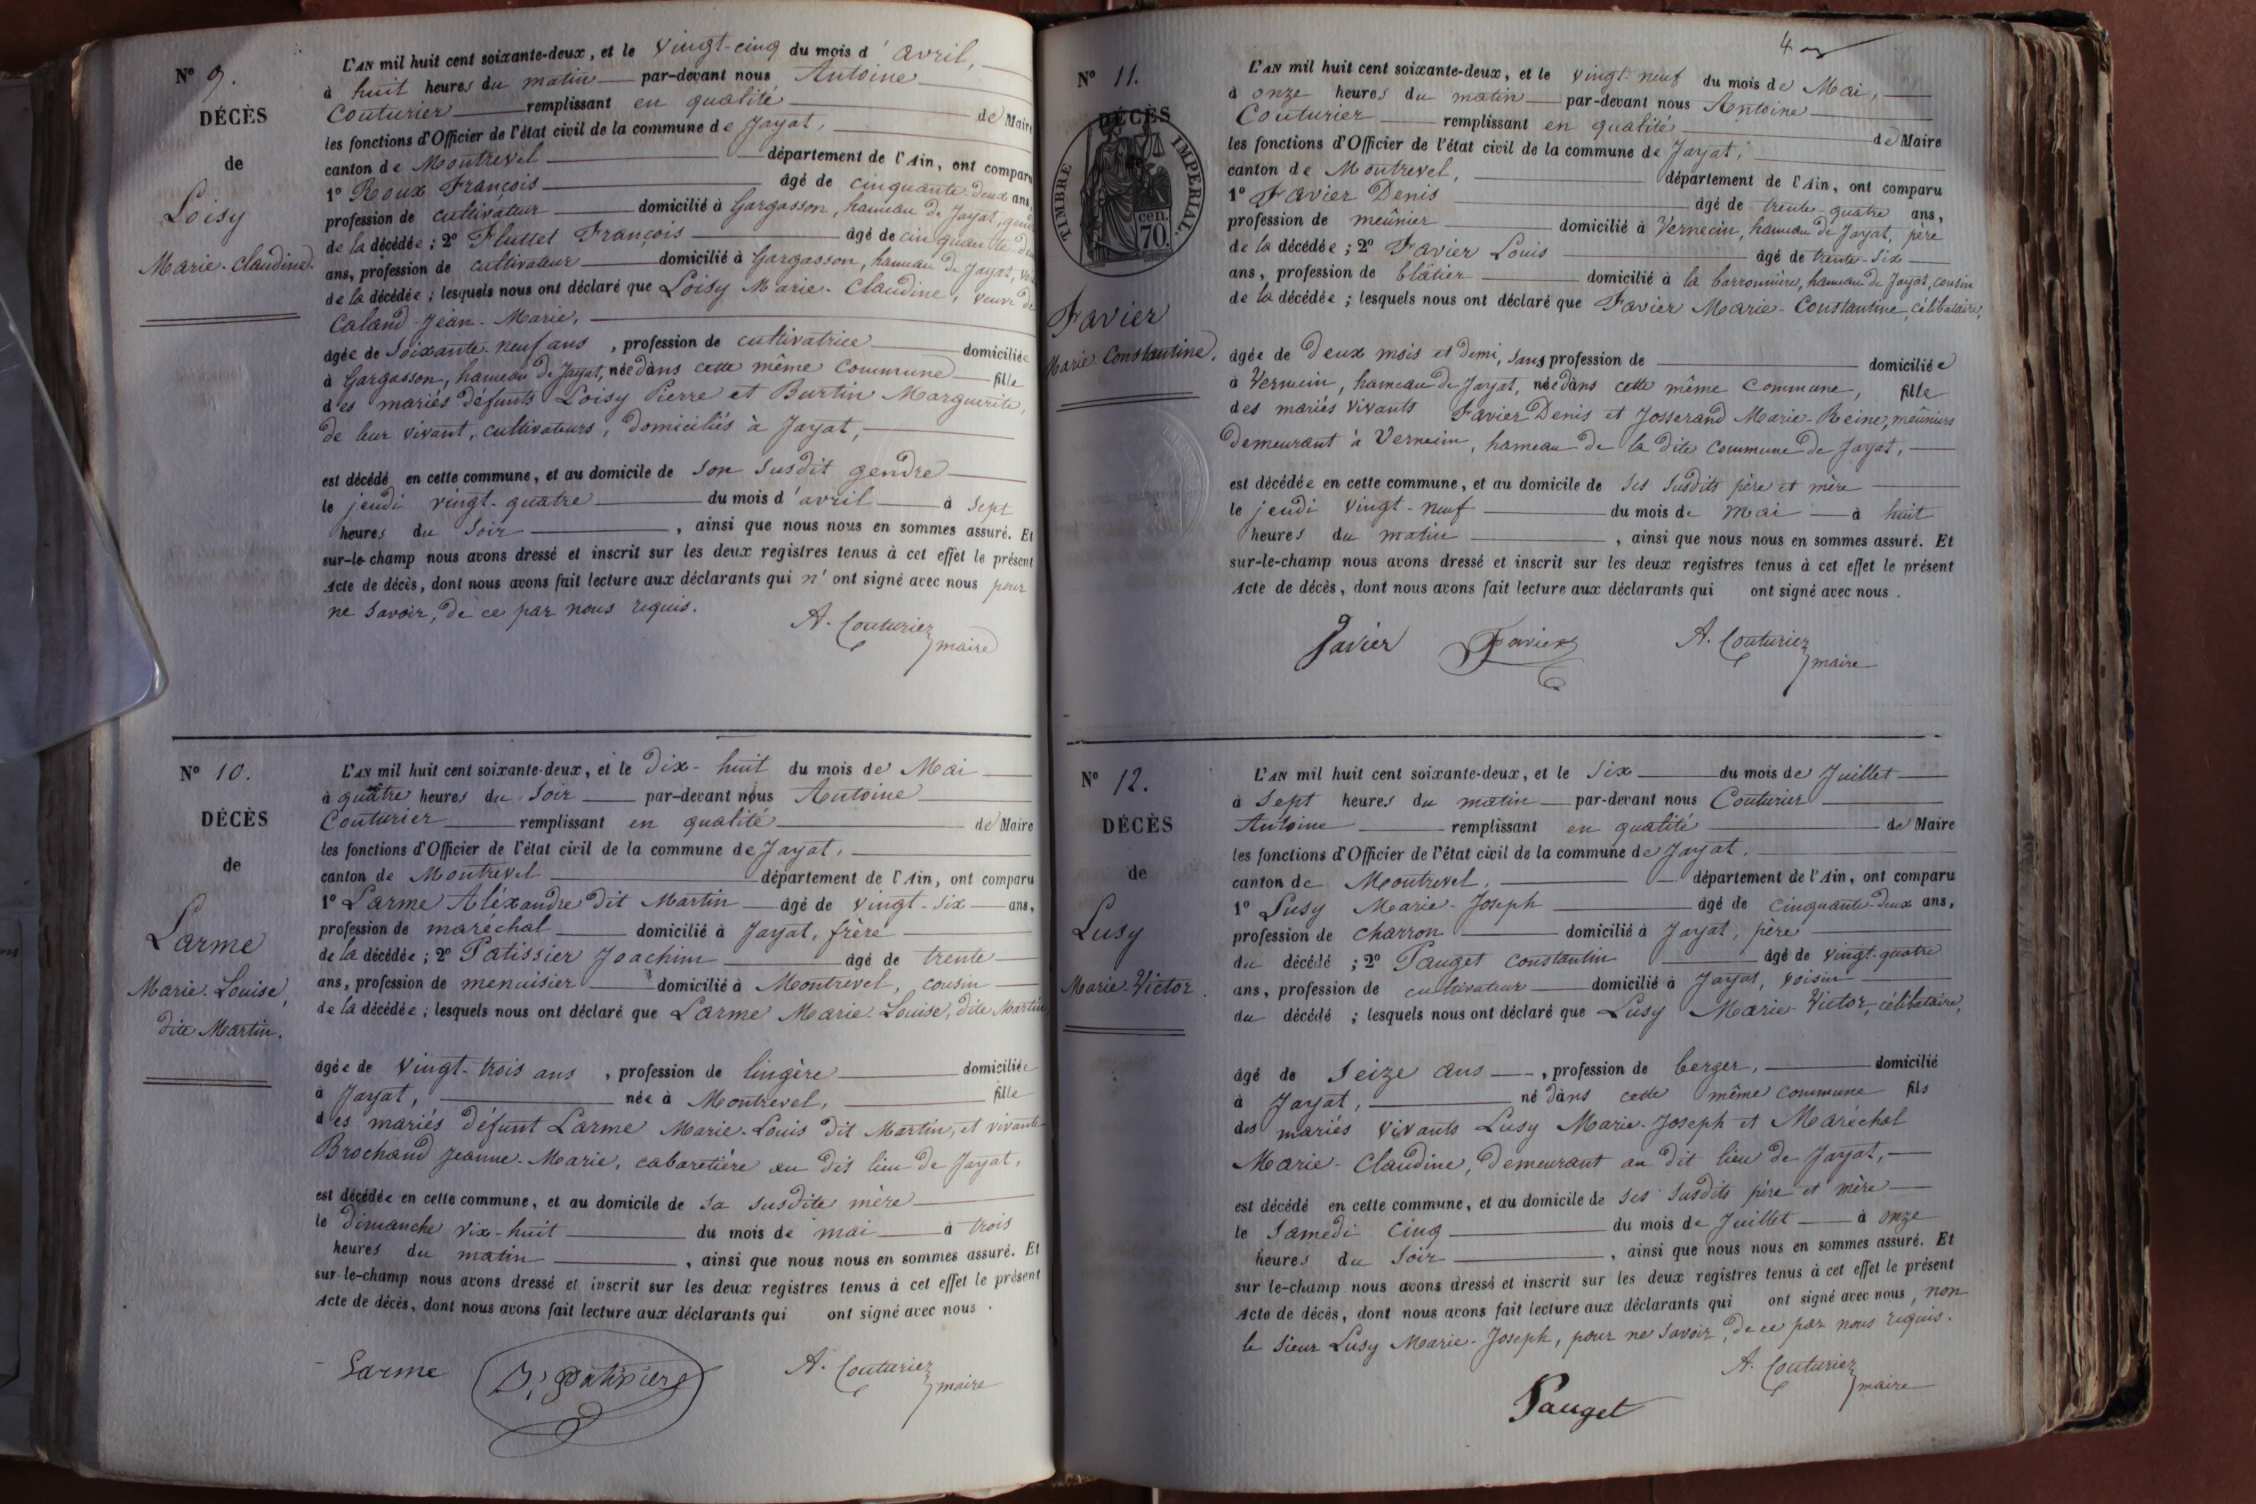 N° 9.
DÉCÈS
de
Loisy
Marie-Claudine.
L'AN mil huit cent soixante-deux, et le vingt-cinq du mois d'avril,
à huit heures du matin par-devant nous Antoine
Couturier remplissant en qualité de Maire
les fonctions d'Officier de l'état civil de la commune de Jayat,
canton de Montrevel département de l'Ain, ont comparu
1° Roux François âgé de cinquante deux ans,
profession de cultivateur domicilié à Gargasson, hameau de Jayat, gendre
de la décédée ; 2° Fluttet François âgé de cinquante
ans, profession de cultivateur domicilié à Gargasson, hameau de Jayat,
de la décédée ; lesquels nous ont déclaré que Loisy Marie-Claudine, veuve de
Caland Jean-Marie,
âgée de soixante-neuf ans, profession de cultivatrice domiciliée
à Gargasson, hameau de Jayat, née dans cette même commune fille
des mariés défunts Loisy Pierre et Burtin Marguerite,
de leur vivant, cultivateurs, domiciliés à Jayat,
est décédé en cette commune, et au domicile de son susdit gendre
le jeudi vingt-quatre du mois d'avril à sept
heures du soir, ainsi que nous nous en sommes assuré. Et
sur-le-champ nous avons dressé et inscrit sur les deux registres tenus à cet effet le présent
Acte de décès, dont nous avons fait lecture aux déclarants qui n'ont signé avec nous pour
ne savoir, de ce par nous requis.
A. Couturier
maire
N° 10.
DÉCÈS
de
Larme
Marie-Louise,
dite Martin.
L'AN mil huit cent soixante-deux, et le dix-huit du mois de Mai
à quatre heures du soir par-devant nous Antoine
Couturier remplissant en qualité de Maire
les fonctions d'Officier de l'état civil de la commune de Jayat,
canton de Montrevel département de l'Ain, ont comparu
1° Larme Aléxandre dit Martin âgé de vingt-six ans,
profession de maréchal domicilié à Jayat, frère
de la décédée ; 2° Patissier Joachim âgé de trente
ans, profession de menuisier domicilié à Montrevel, cousin
de la décédée ; lesquels nous ont déclaré que Larme Marie Louise, dite Martin
âgée de vingt-trois ans, profession de lingère domiciliée
à Jayat, née à Montrevel, fille
des mariés défunt Larme Marie-Louis dit Martin, et vivante
Brochand Jeanne-Marie, cabaretière au dit lieu de Jayat,
est décédée en cette commune, et au domicile de sa susdite mère
le dimanche dix-huit du mois de mai à trois
heures du matin, ainsi que nous nous en sommes assuré. Et
sur-le-champ nous avons dressé et inscrit sur les deux registres tenus à cet effet le présent
Acte de décès, dont nous avons fait lecture aux déclarants qui ont signé avec nous.
Larme
A. Couturier
maire
4
N° 11.
DÉCÈS
TIMBRE IMPERIAL.
70. cen.
Favier
Marie Constantine.
L'AN mil huit cent soixante-deux, et le vingt-neuf du mois de Mai,
à onze heures du matin par-devant nous Antoine
Couturier remplissant en qualité de Maire
les fonctions d'Officier de l'état civil de la commune de Jayat,
canton de Montrevel, département de l'Ain, ont comparu
1° Favier Denis âgé de trente-quatre ans,
profession de meûnier domicilié à Vernecin, hameau de Jayat, père
de la décédée ; 2° Favier Louis âgé de trente-six
ans, profession de blâtier domicilié à la barronnière, hameau de Jayat, cousin
de la décédée ; lesquels nous ont déclaré que Favier Marie-Constantine, célibataire,
âgée de deux mois et demi, sans profession de domiciliée
à Vernecin, hameau de Jayat, née dans cette même commune, fille
des mariés vivants Favier Denis et Josserand Marie-Reine, meûniers
demeurant à Vernecin, hameau de la dite commune de Jayat,
est décédée en cette commune, et au domicile de ses susdits père et mère
le jeudi vingt-neuf du mois de mai à huit
heures du matin, ainsi que nous nous en sommes assuré. Et
sur-le-champ nous avons dressé et inscrit sur les deux registres tenus à cet effet le présent
Acte de décès, dont nous avons fait lecture aux déclarants qui ont signé avec nous.
Favier Favier A. Couturier
maire
N° 12.
DÉCÈS
de
Lusy
Marie-Victor.
L'AN mil huit cent soixante-deux, et le six du mois de Juillet
à sept heures du matin par-devant nous Couturier
Antoine remplissant en qualité de Maire
les fonctions d'Officier de l'état civil de la commune de Jayat.
canton de Montrevel, département de l'Ain, ont comparu
1° Lusy Marie-Joseph âgé de cinquante-deux ans,
profession de charron domicilié à Jayat, père
du décédé ; 2° Pauget Constantin âgé de vingt-quatre
ans, profession de cultivateur domicilié à Jayat, voisin
du décédé ; lesquels nous ont déclaré que Lusy Marie-Victor, célibataire,
âgé de seize ans, profession de berger, domicilié
à Jayat, né dans cette même commune fils
des mariés vivants Lusy Marie-Joseph et Maréchal
Marie-Claudine, demeurant au dit lieu de Jayat,
est décédé en cette commune, et au domicile de ses susdits père et mère
le samedi cinq du mois de Juillet à onze
heures du soir, ainsi que nous nous en sommes assuré. Et
sur-le-champ nous avons dressé et inscrit sur les deux registres tenus à cet effet le présent
Acte de décès, dont nous avons fait lecture aux déclarants qui ont signé avec nous, non
le sieur Lusy Marie-Joseph, pour ne savoir, de ce par nous requis.
A. Couturier
maire
Pauget